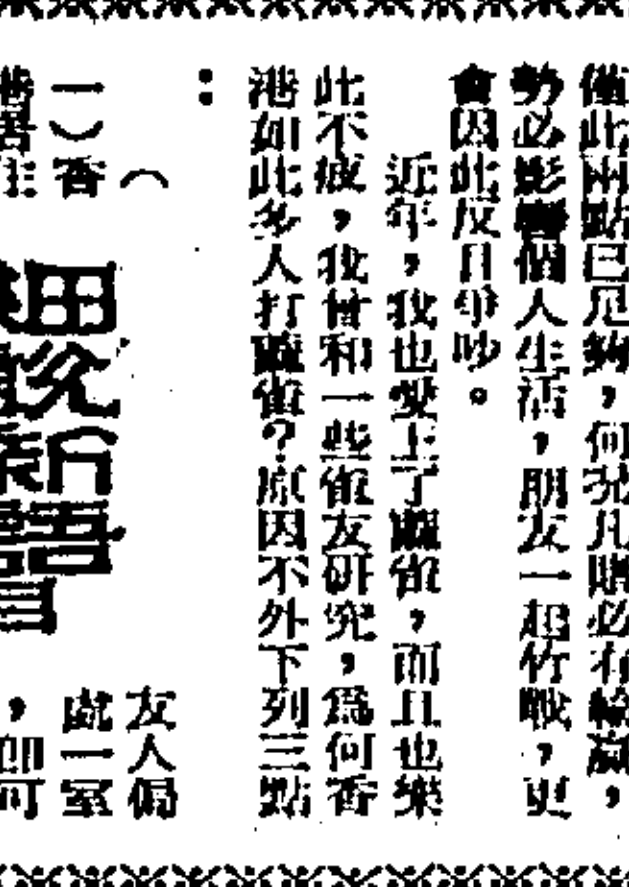 僅此兩點已足夠，何況凡賭必有輸贏，
勢必影響個人生活，朋友一起竹戰，更
會因此反目爭吵。
近年，我也愛上了麻雀，而且也樂
此不疲，我曾和一些雀友研究，爲何香
港如此多人打麻雀？原因不外下列三點
：
（
一）香
港居住
細說新語
友人偏
處一室
，即可